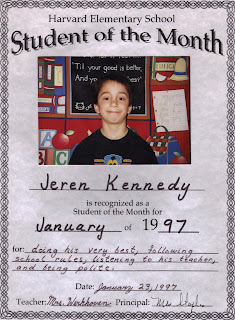 Harvard Elementary School
Student of the Month
'Til your good is better,
And your
Jeren Kennedy
is recognized as a
Student of the Month for
January of 1997
for: doing his very best, following
school rules, listening to his teacher,
and being polite.
Date: January 23, 1997
Teacher: Mrs. Workhoven Principal: